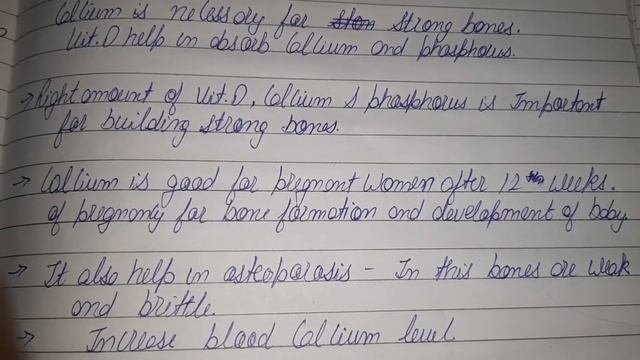 Calcium is necessary for strong bones.
Vit.D help in absorb Calcium and phosphorus.
→ Right amount of Vit.D, Calcium & phosphorus is Important
for building strong bones.
→ Calcium is good for pregnant women after 12 weeks.
of pregnancy for bone formation and development of baby
→ It also help in osteoporosis - In this bones are weak
and brittle.
→ Increase blood Calcium level